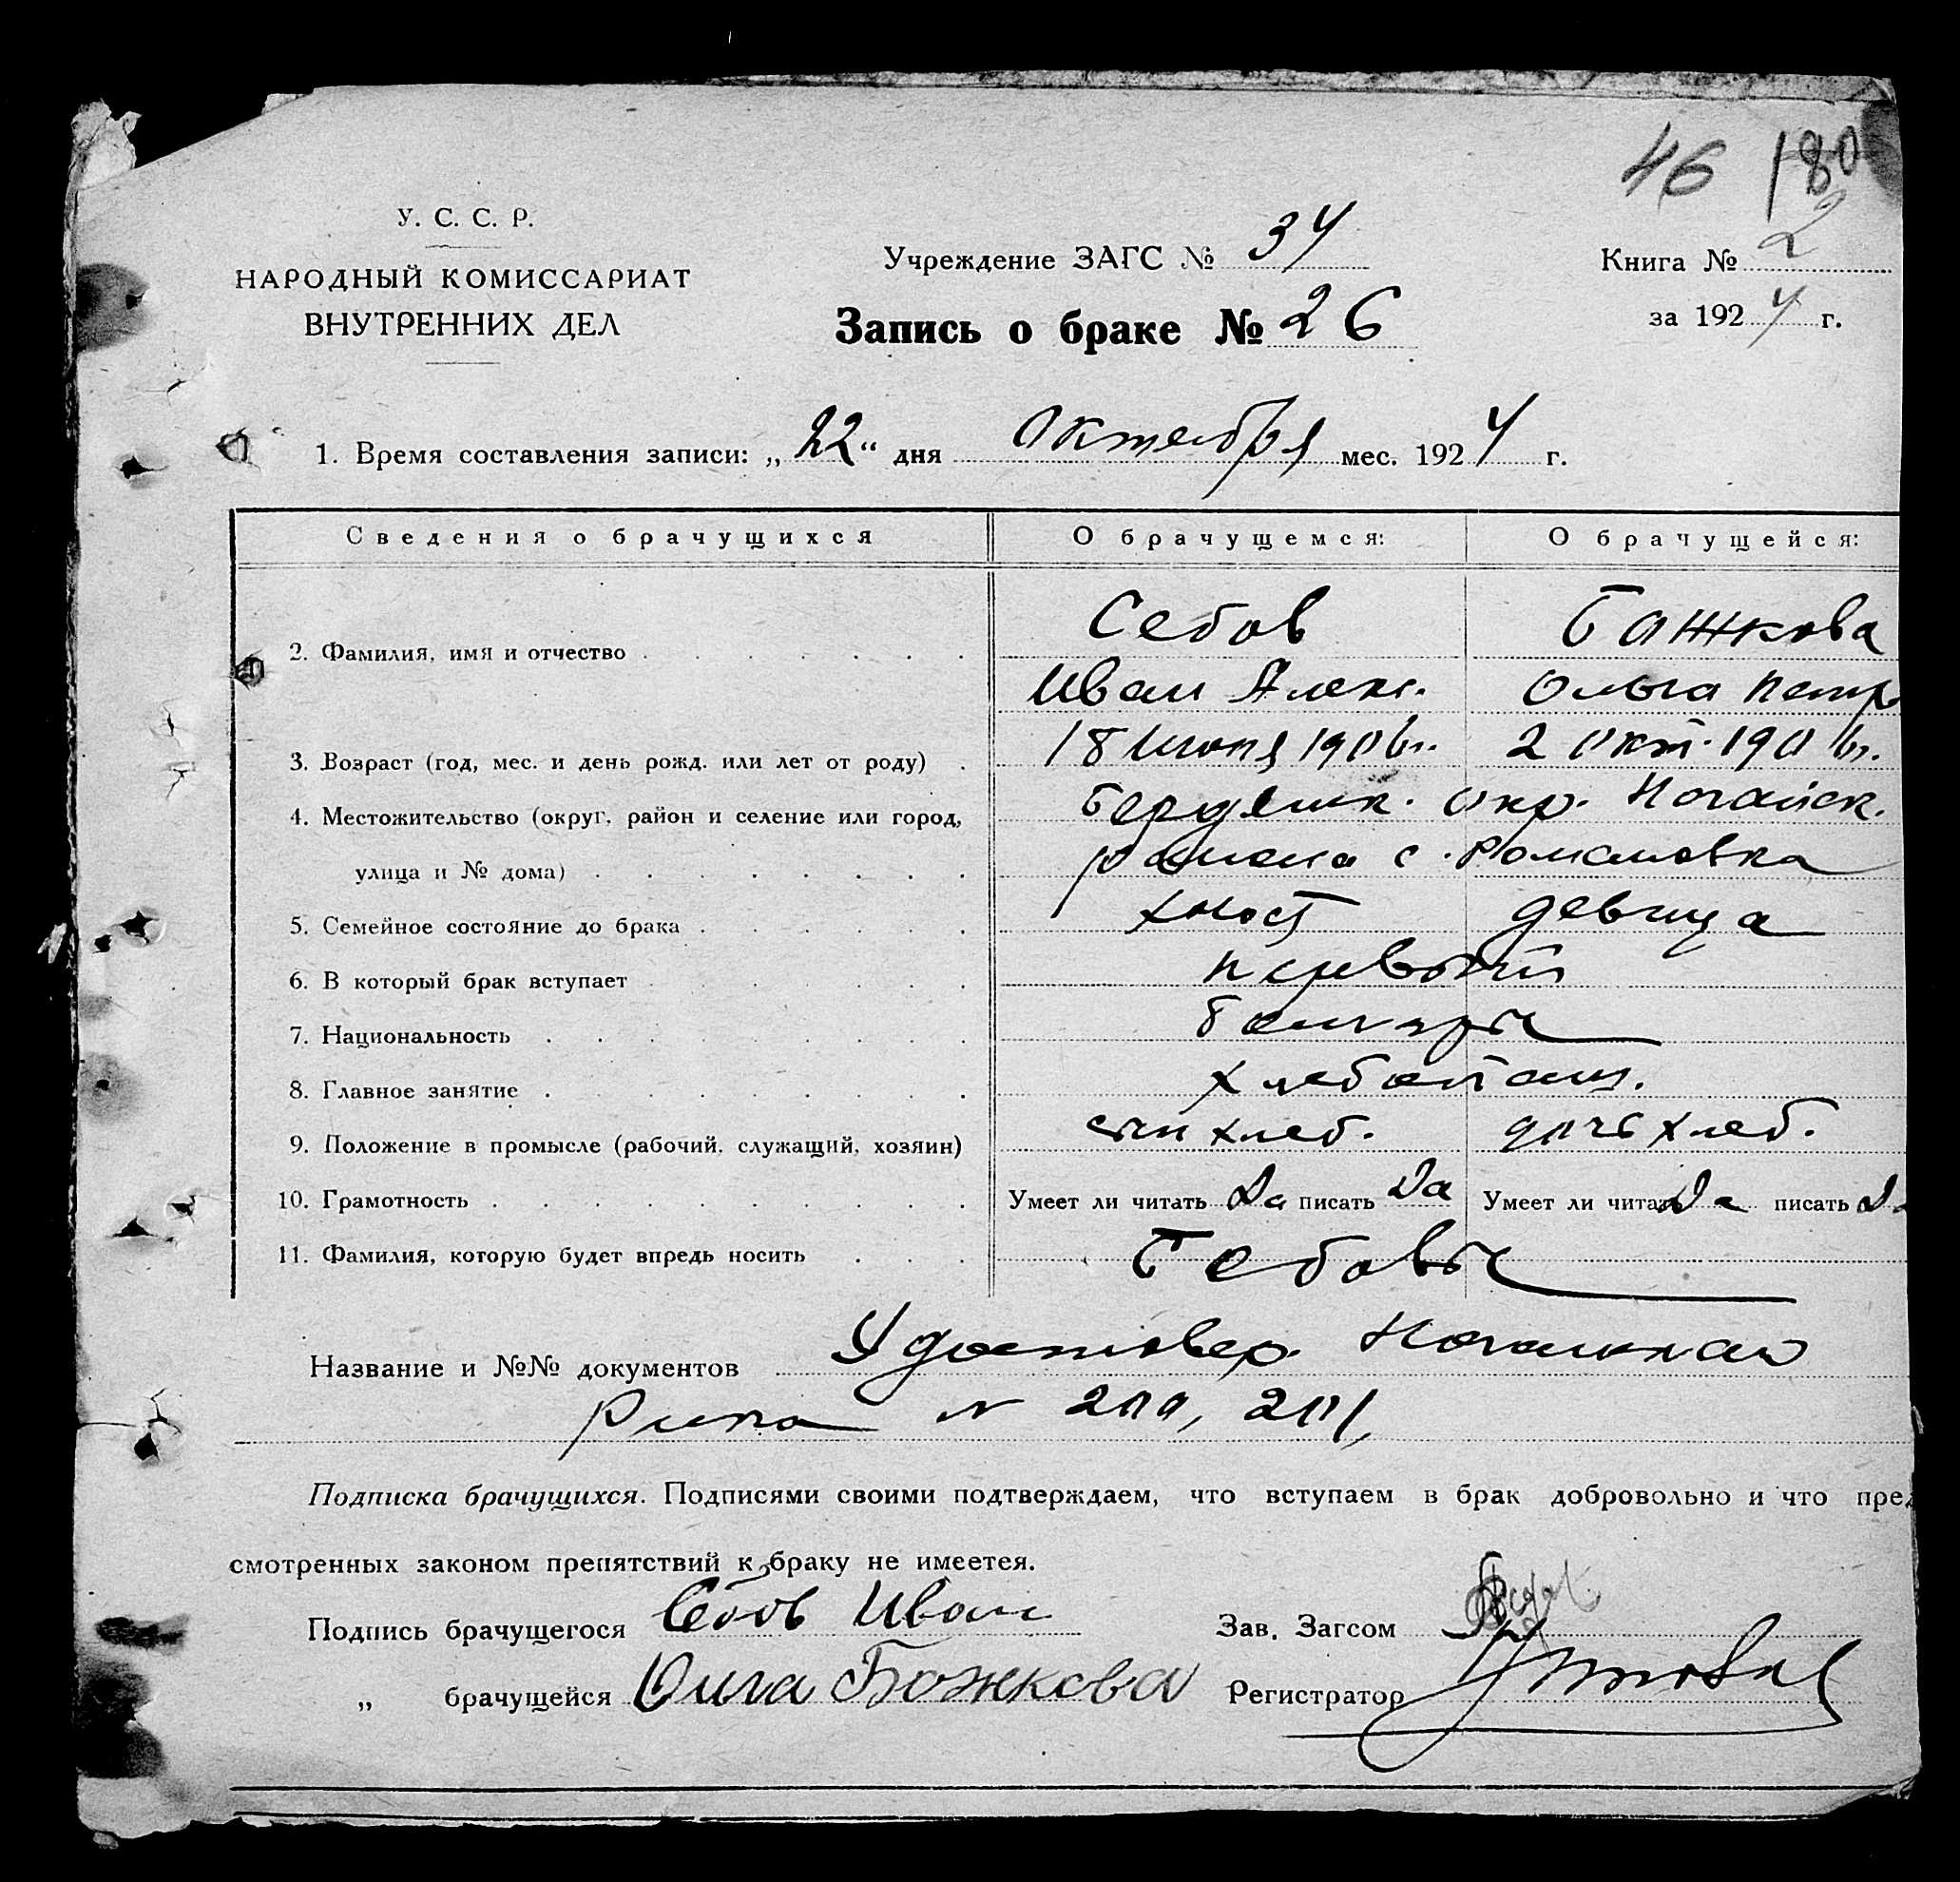 46 180
У. С. С. Р.
НАРОДНЫЙ КОМИССАРИАТ
ВНУТРЕННИХ ДЕЛ
Учреждение ЗАГС № 34
Книга № 2
Запись о браке № 26
за 1924 г.
1. Время составления записи: „22“ дня Октября мес. 1924 г.
Сведения о брачущихся О брачущемся: О брачущейся:
2. Фамилия, имя и отчество Себов Бажкова
Иван Алекс. Ольга Петр
3. Возраст (год, мес. и день рожд. или лет от роду) 18 Июня 1906 г. 2 окт. 1906 г.
4. Местожительство (округ, район и селение или город, Бердянск. окр. Ногайск.
улица и № дома) района с. Романовка
5. Семейное состояние до брака холост девица
6. В который брак вступает первый
7. Национальность болгары
8. Главное занятие хлебопаш.
9. Положение в промысле (рабочий, служащий, хозяин) сын хлеб. дочь хлеб.
10. Грамотность Умеет ли читать Да писать Да Умеет ли читать Да писать Да
11. Фамилия, которую будет впредь носить Себовы
Название и №№ документов Удостовер.
Рика N 200, 201,
Подписка брачущихся. Подписями своими подтверждаем, что вступаем в брак добровольно и что пред
смотренных законом препятствий к браку не имеетея.
Подпись брачущегося Себов Иван Зав. Загсом
„ брачущейся Ольга Божкова Регистратор